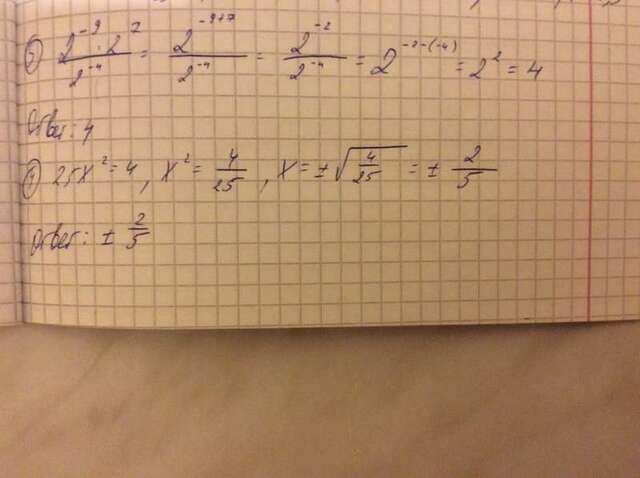 ③ (2⁻⁹·2⁷)/2⁻⁴ = 2⁻⁹⁺⁷/2⁻⁴ = 2⁻²/2⁻⁴ = 2⁻²⁻⁽⁻⁴⁾ = 2² = 4
Ответ: 4
④ 25x² = 4, x² = 4/25, x = ±√(4/25) = ± 2/5
Ответ: ± 2/5